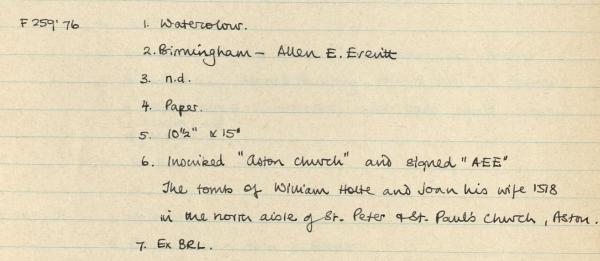 F 259'76 1. Watercolour.
2. Birmingham - Allen E. Everitt
3. n.d.
4. Paper.
5. 10½" x 15"
6. Inscribed "Aston Church" and signed "AEE"
The tomb of William Holte and Joan his wife 1518
in the north aisle of St. Peter & St. Paul's Church, Aston.
7. Ex BRL.